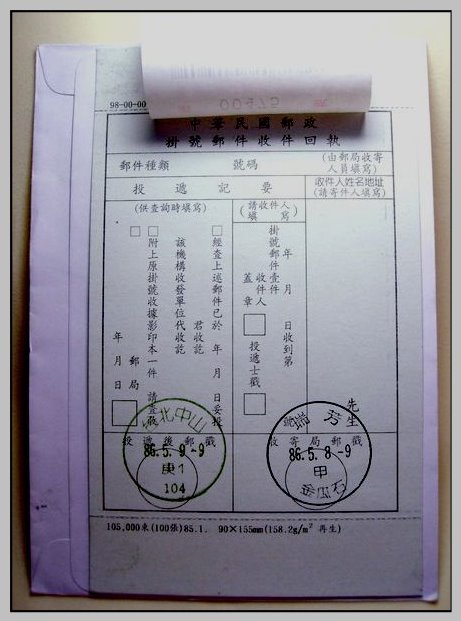 98-00-00
00475
中華民國郵政
掛號郵件收件回執
郵件種類 號碼
(由郵局收寄人員填寫)
投遞記要
收件人姓名地址
(請寄件人填寫)
(供查詢時填寫)
(請收件人填寫)
經查上述郵件已於 年 月 日妥投
君收訖
該機構收發單位代收訖
附上原掛號收據影印本一件 請查收
郵局
年 月 日
掛號郵件壹件
年 月 日收到第
收件人
蓋章
投遞士戳
先生
投遞後郵戳
收寄局郵戳
台北中山
86.5.9-9
庚1
104
瑞芳
86.5.8-9
甲
金瓜石
105,000束(100張)85.1. 90×155mm(158.2g/m² 再生)